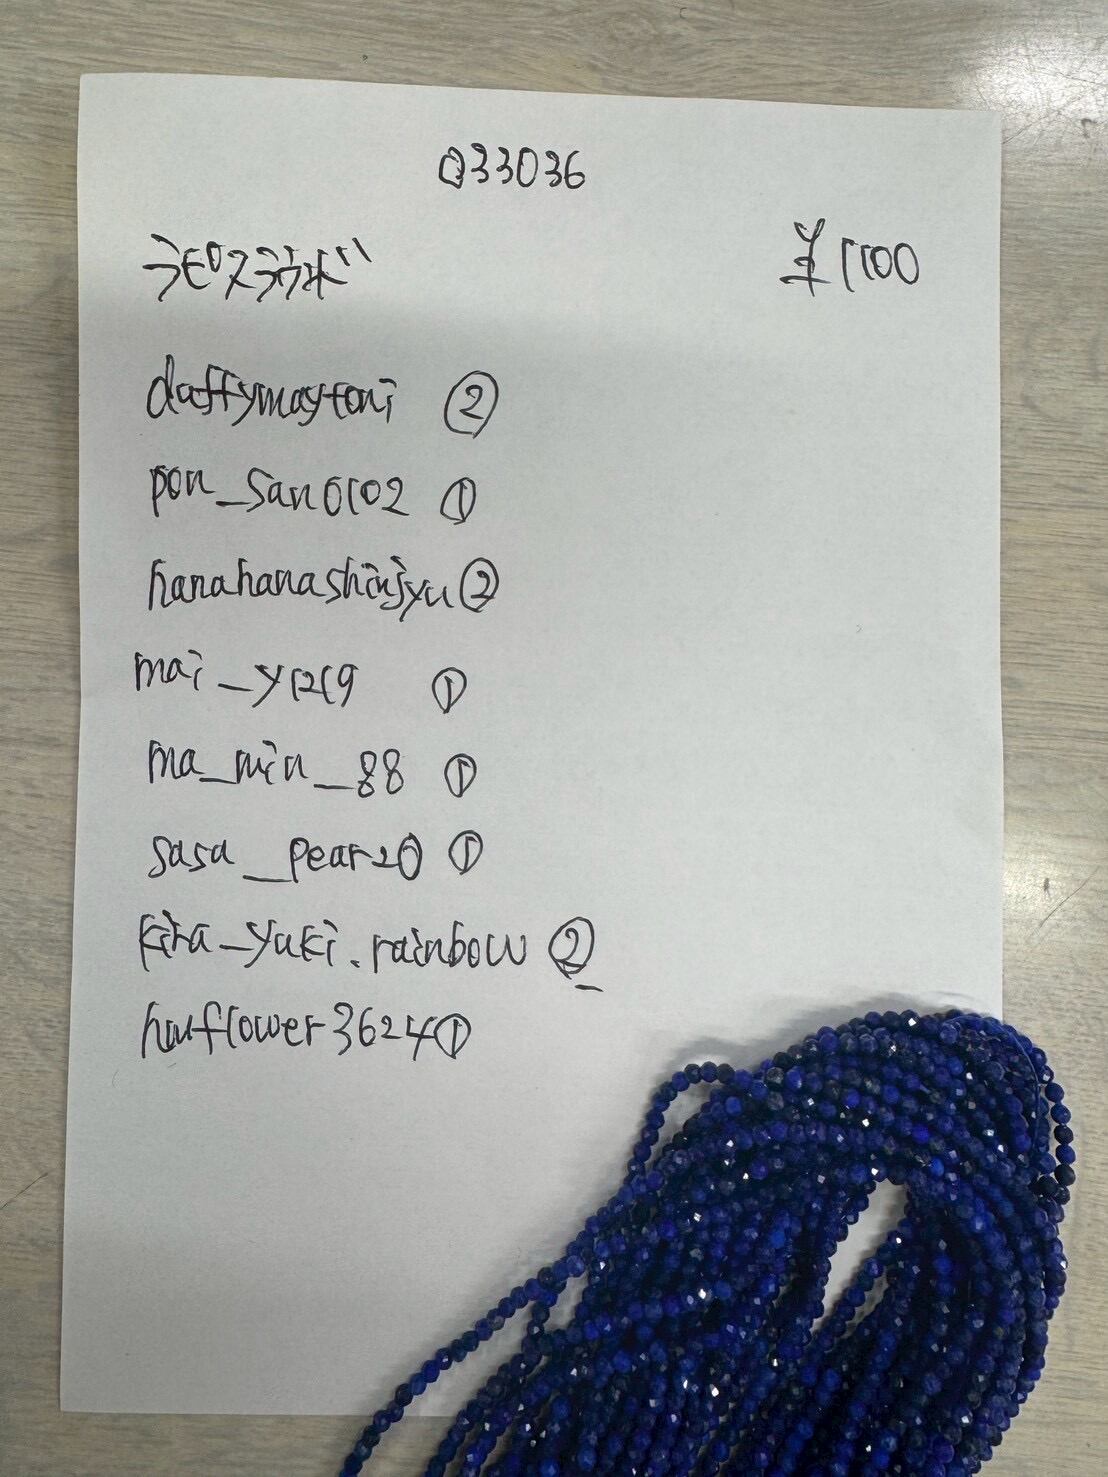 033036
ラピスラズリ ¥1100
daffymaytoni ②
pon_san0102 ①
hanahanashinjyu ②
mai_y1219 ①
ma_min_88 ①
sasa_pear20 ①
kira_yuki.rainbow ②
①